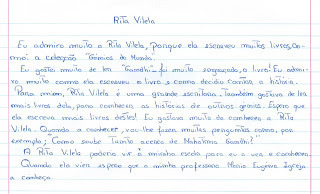 Rita Vilela
Eu admiro muito a Rita Vilela, porque ela escreveu muitos livros, co-
mo: a colecção "Génios do Mundo.
Eu gostei muito de ler "Gandhi". foi muito engraçado, o livro! Eu admi-
ro muito como ela escreveu o livro e como decidiu contar a história.
Para mim, Rita Vilela é uma grande escritora. Também gostava de ler
mais livros dela, para conhecer as histórias de outros génios. Espero que
ela escreva mais livros destes! Eu gostava muito de conhecer a Rita
Vilela. Quando a conhecer, vou-lhe fazer muitas perguntas como, por
exemplo; Como soube tanto acerca de Mahatma Gandhi?"
A Rita Vilela poderia vir à minha escola para eu a ver e conhecer.
Quando ela vier espero que a minha professora Maria Eugénia Igreja
a conheça.